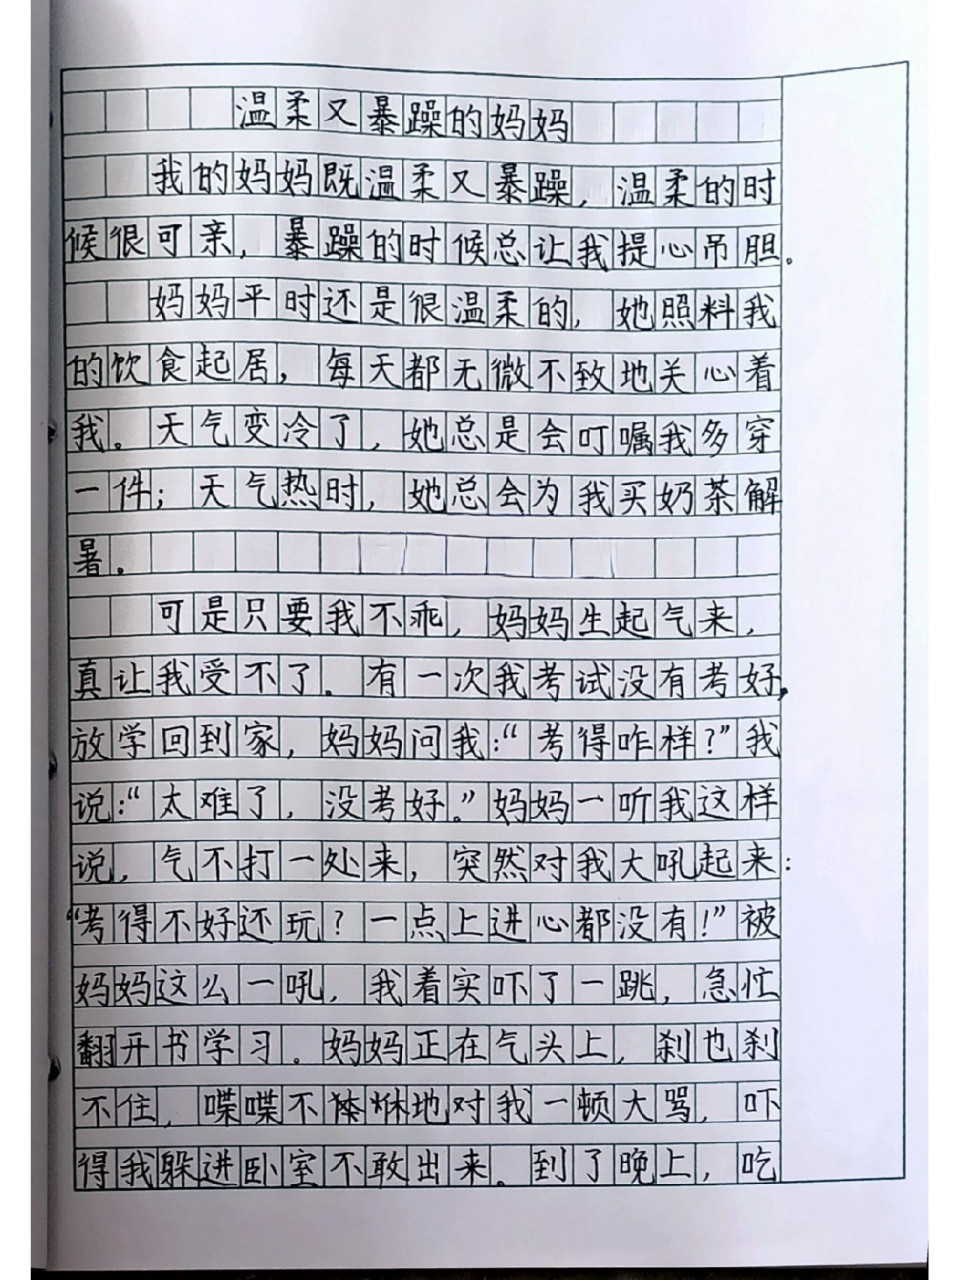 温柔又暴躁的妈妈
我的妈妈既温柔又暴躁，温柔的时
候很可亲，暴躁的时候总让我提心吊胆。
妈妈平时还是很温柔的，她照料我
的饮食起居，每天都无微不致地关心着
我。天气变冷了，她总是会叮嘱我多穿
一件；天气热时，她总会为我买奶茶解
暑。
可是只要我不乖，妈妈生起气来，
真让我受不了。有一次我考试没有考好，
放学回到家，妈妈问我：“考得咋样？”我
说：“太难了，没考好。”妈妈一听我这样
说，气不打一处来，突然对我大吼起来：
“考得不好还玩？一点上进心都没有！”被
妈妈这么一吼，我着实吓了一跳，急忙
翻开书学习。妈妈正在气头上，刹也刹
不住，喋喋不休地对我一顿大骂，吓
得我躲进卧室不敢出来。到了晚上，吃